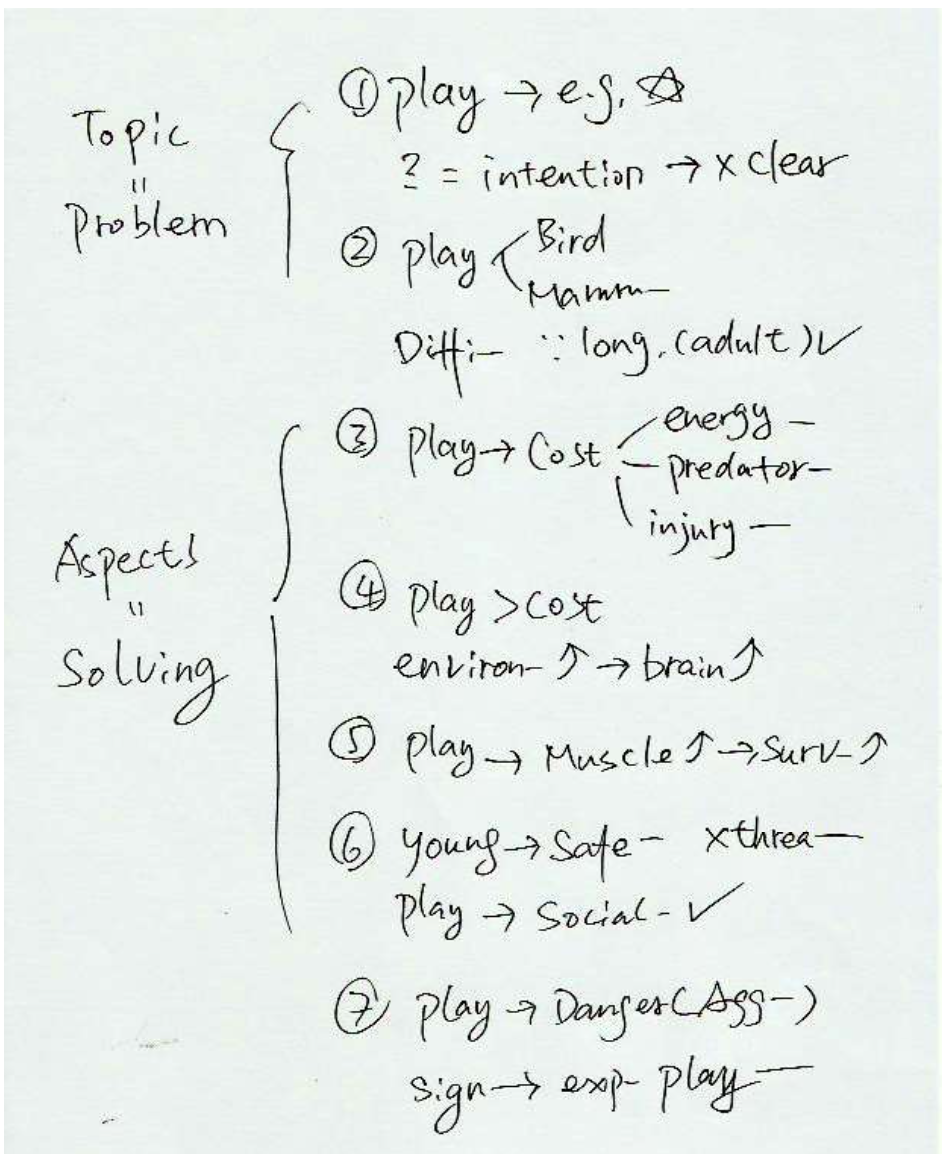 Topic
"
Problem
① play → e.g. ☆
? = intention → x clear
② play Bird
Mamm—
Diffi— ∵ long. (adult) ✓
Aspects
"
Solving
③ play → Cost energy —
— predator —
injury —
④ play > cost
environ- ↑ → brain ↑
⑤ play → Muscle ↑ → Surv- ↑
⑥ young → Safe - x threa—
play → Social - ✓
⑦ play → Danger (Agg-)
sign → exp- play —